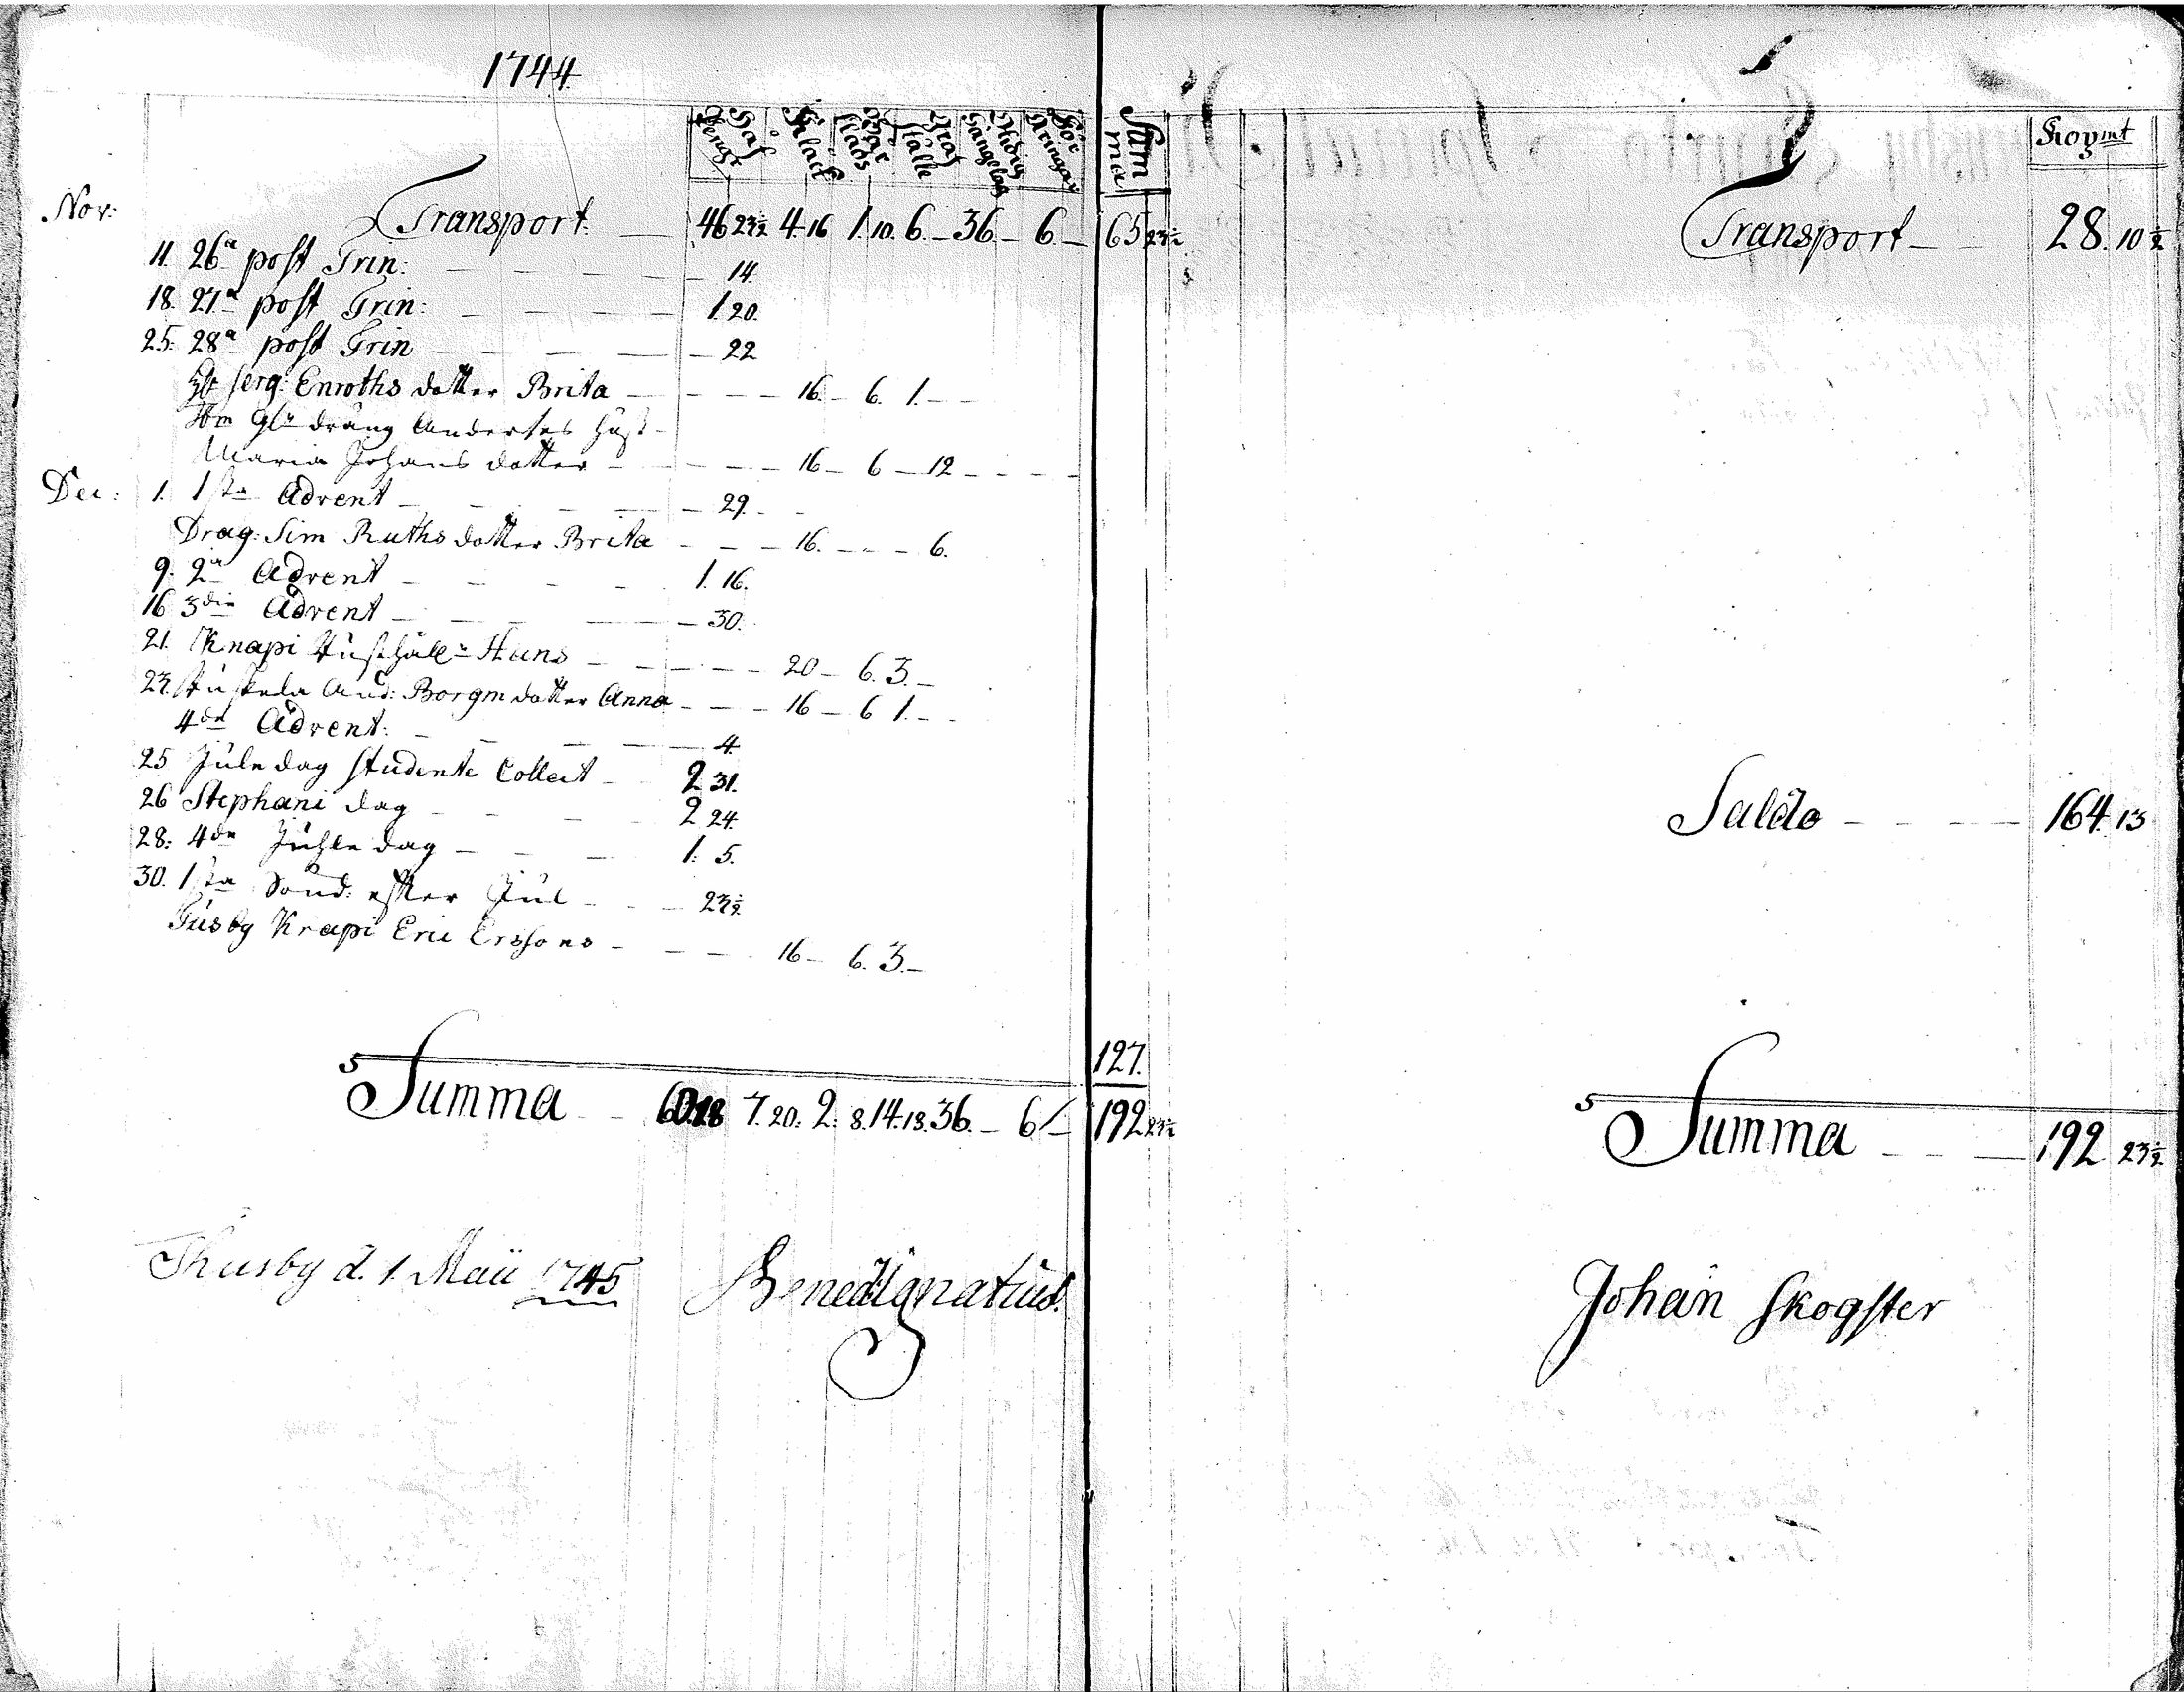 1744
Håf Pengr Klåck Bår Klads Graf ställe Sängelag Stör Kringar Summa
Nov: Transport. 46 23½ 4 16 1. 10. 6. — 36 — 6. — 65 23½
11. 26a post Trin: 14.
18. 27a post Trin: 1. 20.
25. 28a post Trin 22
serg: Enroths dotter Brita 16. 6. 1.
dräng Anderses Hust
Maria Johans dotter 16 — 6 — 12
Dec: 1. 1sta Advent 29.
Drag: Sim Ruths dotter Brita 16. 6.
9. 2a Advent 1. 16.
16 3die Advent 30.
21. Knapi Hans 20 — 6. 3.
23. And: Borgm dotter Anna 16 — 6 1.
4de Advent: 4.
25 Jule dag studente Collect 2 31.
26 Stephani dag 2 24.
28: 4de Juhle dag 1. 5.
30. 1sta Sönd: efter Jul 23½
Tusby Knapi Eric Erssons 16 — 6. 3.
127.
Summa 7. 20. 2. 8. 14. 18. 36. — 6 — 192 23½
Thusby d. 1. Maii 1745 Bened Ignatius.
Koymt
Transport 28. 10½
Saldo 164. 13
Summa 192 23½
Johan Skogster